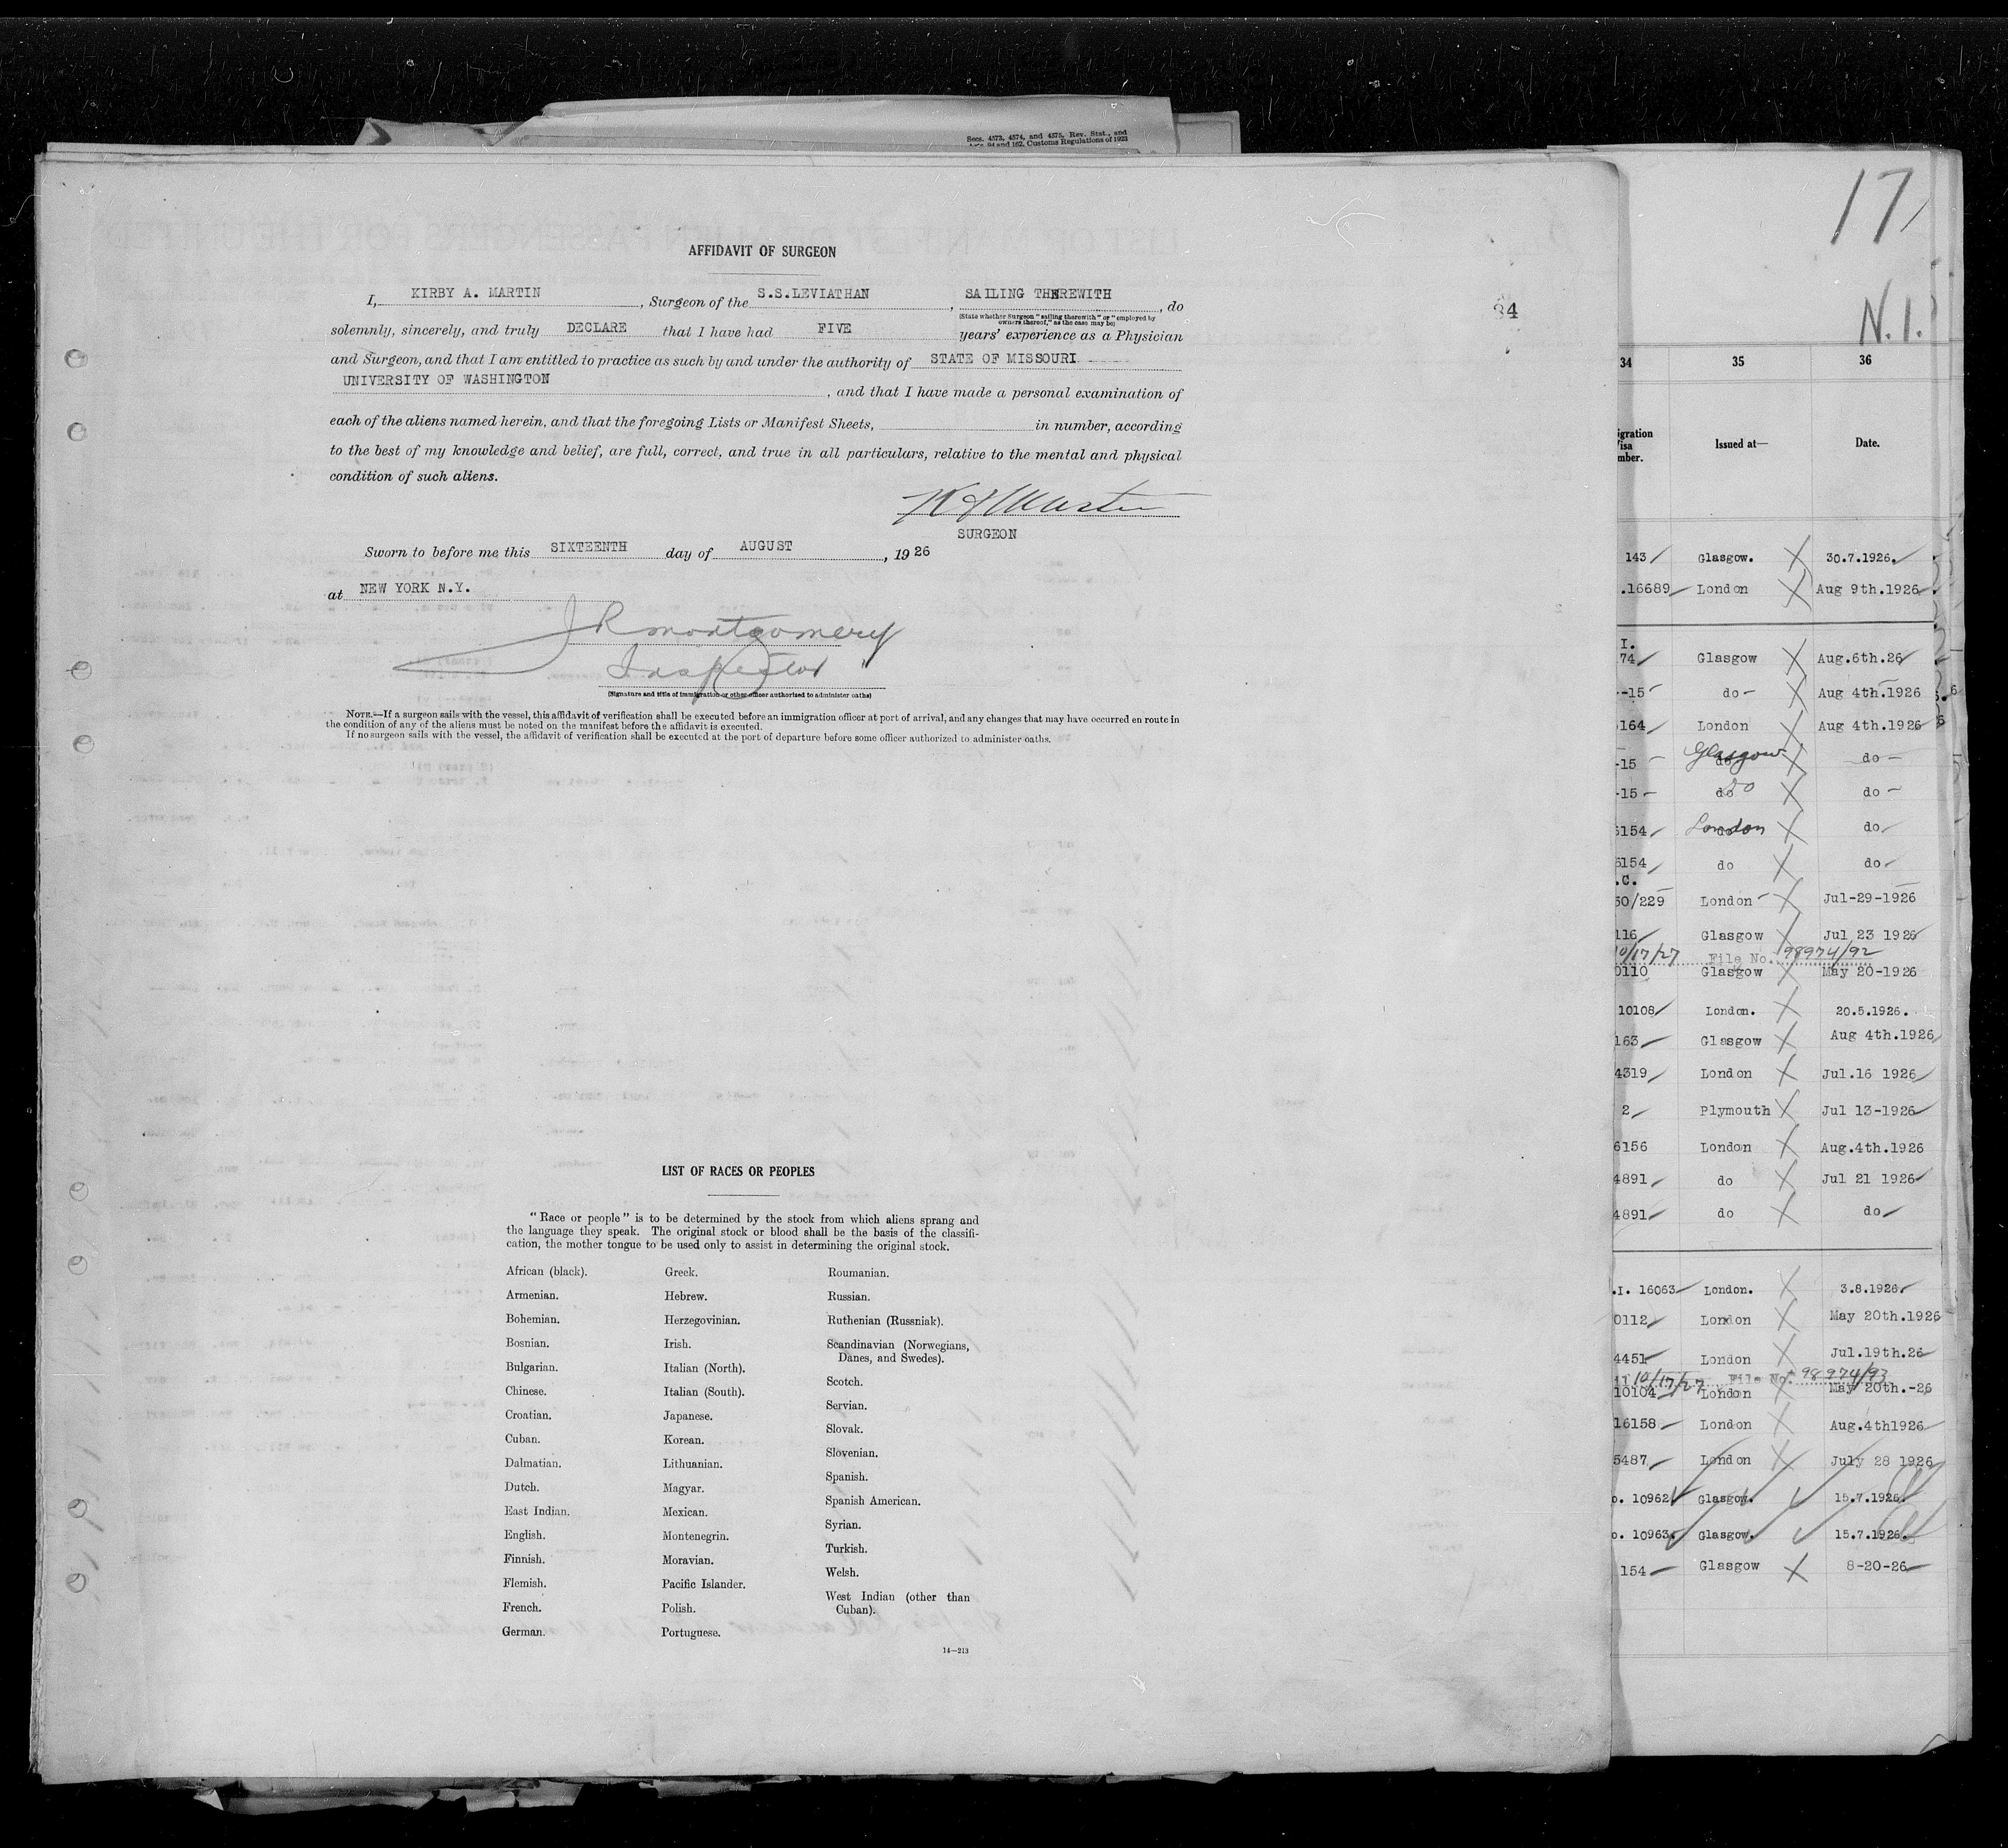 Secs. 4573, 4574, and 4575, Rev. Stat., and
94 and 162, Customs Regulations of 1923
AFFIDAVIT OF SURGEON
I, KIRBY A. MARTIN, Surgeon of the S.S.LEVIATHAN, SAILING THEREWITH, do
(State whether Surgeon "sailing therewith" or "employed by
owners thereof," as the case may be)
solemnly, sincerely, and truly DECLARE that I have had FIVE years' experience as a Physician
and Surgeon, and that I am entitled to practice as such by and under the authority of STATE OF MISSOURI
UNIVERSITY OF WASHINGTON, and that I have made a personal examination of
each of the aliens named herein, and that the foregoing Lists or Manifest Sheets, in number, according
to the best of my knowledge and belief, are full, correct, and true in all particulars, relative to the mental and physical
condition of such aliens.
Martin
SURGEON
Sworn to before me this SIXTEENTH day of AUGUST, 1926
at NEW YORK N.Y.
J R Montgomery
Inspector
(Signature and title of immigration or other officer authorized to administer oaths)
NOTE.—If a surgeon sails with the vessel, this affidavit of verification shall be executed before an immigration officer at port of arrival, and any changes that may have occurred en route in
the condition of any of the aliens must be noted on the manifest before the affidavit is executed.
If no surgeon sails with the vessel, the affidavit of verification shall be executed at the port of departure before some officer authorized to administer oaths.
LIST OF RACES OR PEOPLES
"Race or people" is to be determined by the stock from which aliens sprang and
the language they speak. The original stock or blood shall be the basis of the classifi-
cation, the mother tongue to be used only to assist in determining the original stock.
African (black).
Armenian.
Bohemian.
Bosnian.
Bulgarian.
Chinese.
Croatian.
Cuban.
Dalmatian.
Dutch.
East Indian.
English.
Finnish.
Flemish.
French.
German.
Greek.
Hebrew.
Herzegovinian.
Irish.
Italian (North).
Italian (South).
Japanese.
Korean.
Lithuanian.
Magyar.
Mexican.
Montenegrin.
Moravian.
Pacific Islander.
Polish.
Portuguese.
Roumanian.
Russian.
Ruthenian (Russniak).
Scandinavian (Norwegians,
Danes, and Swedes).
Scotch.
Servian.
Slovak.
Slovenian.
Spanish.
Spanish American.
Syrian.
Turkish.
Welsh.
West Indian (other than
Cuban).
14—213
84
17
N.I.
34 35 36
igration
Visa
mber.
Issued at—
Date.
143 Glasgow. 30.7.1926.
.16689 London Aug 9th.1926
I.
74 Glasgow Aug.6th.26
-15 do - Aug 4th.1926
164 London Aug 4th.1926
-15 Glasgow do -
-15 - do do -
6154 London do
6154 do do
.C.
50/229 London - Jul-29-1926
116 Glasgow Jul 23 1926
10/17/27 File No. 98974/92
0110 Glasgow May 20-1926
10108 London. 20.5.1926.
163 Glasgow Aug 4th.1926
4319 London Jul.16 1926
2 Plymouth Jul 13-1926
6156 London Aug.4th.1926
4891 do Jul 21 1926
4891 do do
.I. 16063 London. 3.8.1926.
0112 London May 20th.1926
4451 London Jul.19th.26
10/17/27 File No. 98974/93
10104 London May 20th.-26
16158 London Aug.4th1926
5487 London July 28 1926
o. 10962 Glasgow. 15.7.1926.
o. 10963. Glasgow. 15.7.1926.
154 Glasgow 8-20-26